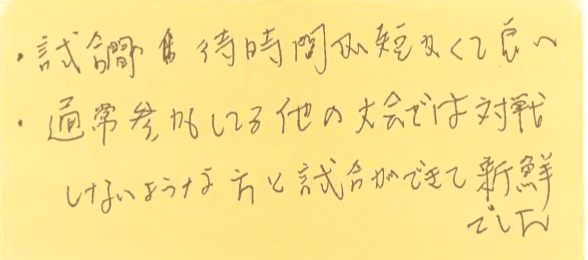 ・試合間 待時間が短かくて良い
・通常参加してる他の大会では対戦
しないような方と試合ができて新鮮
でした